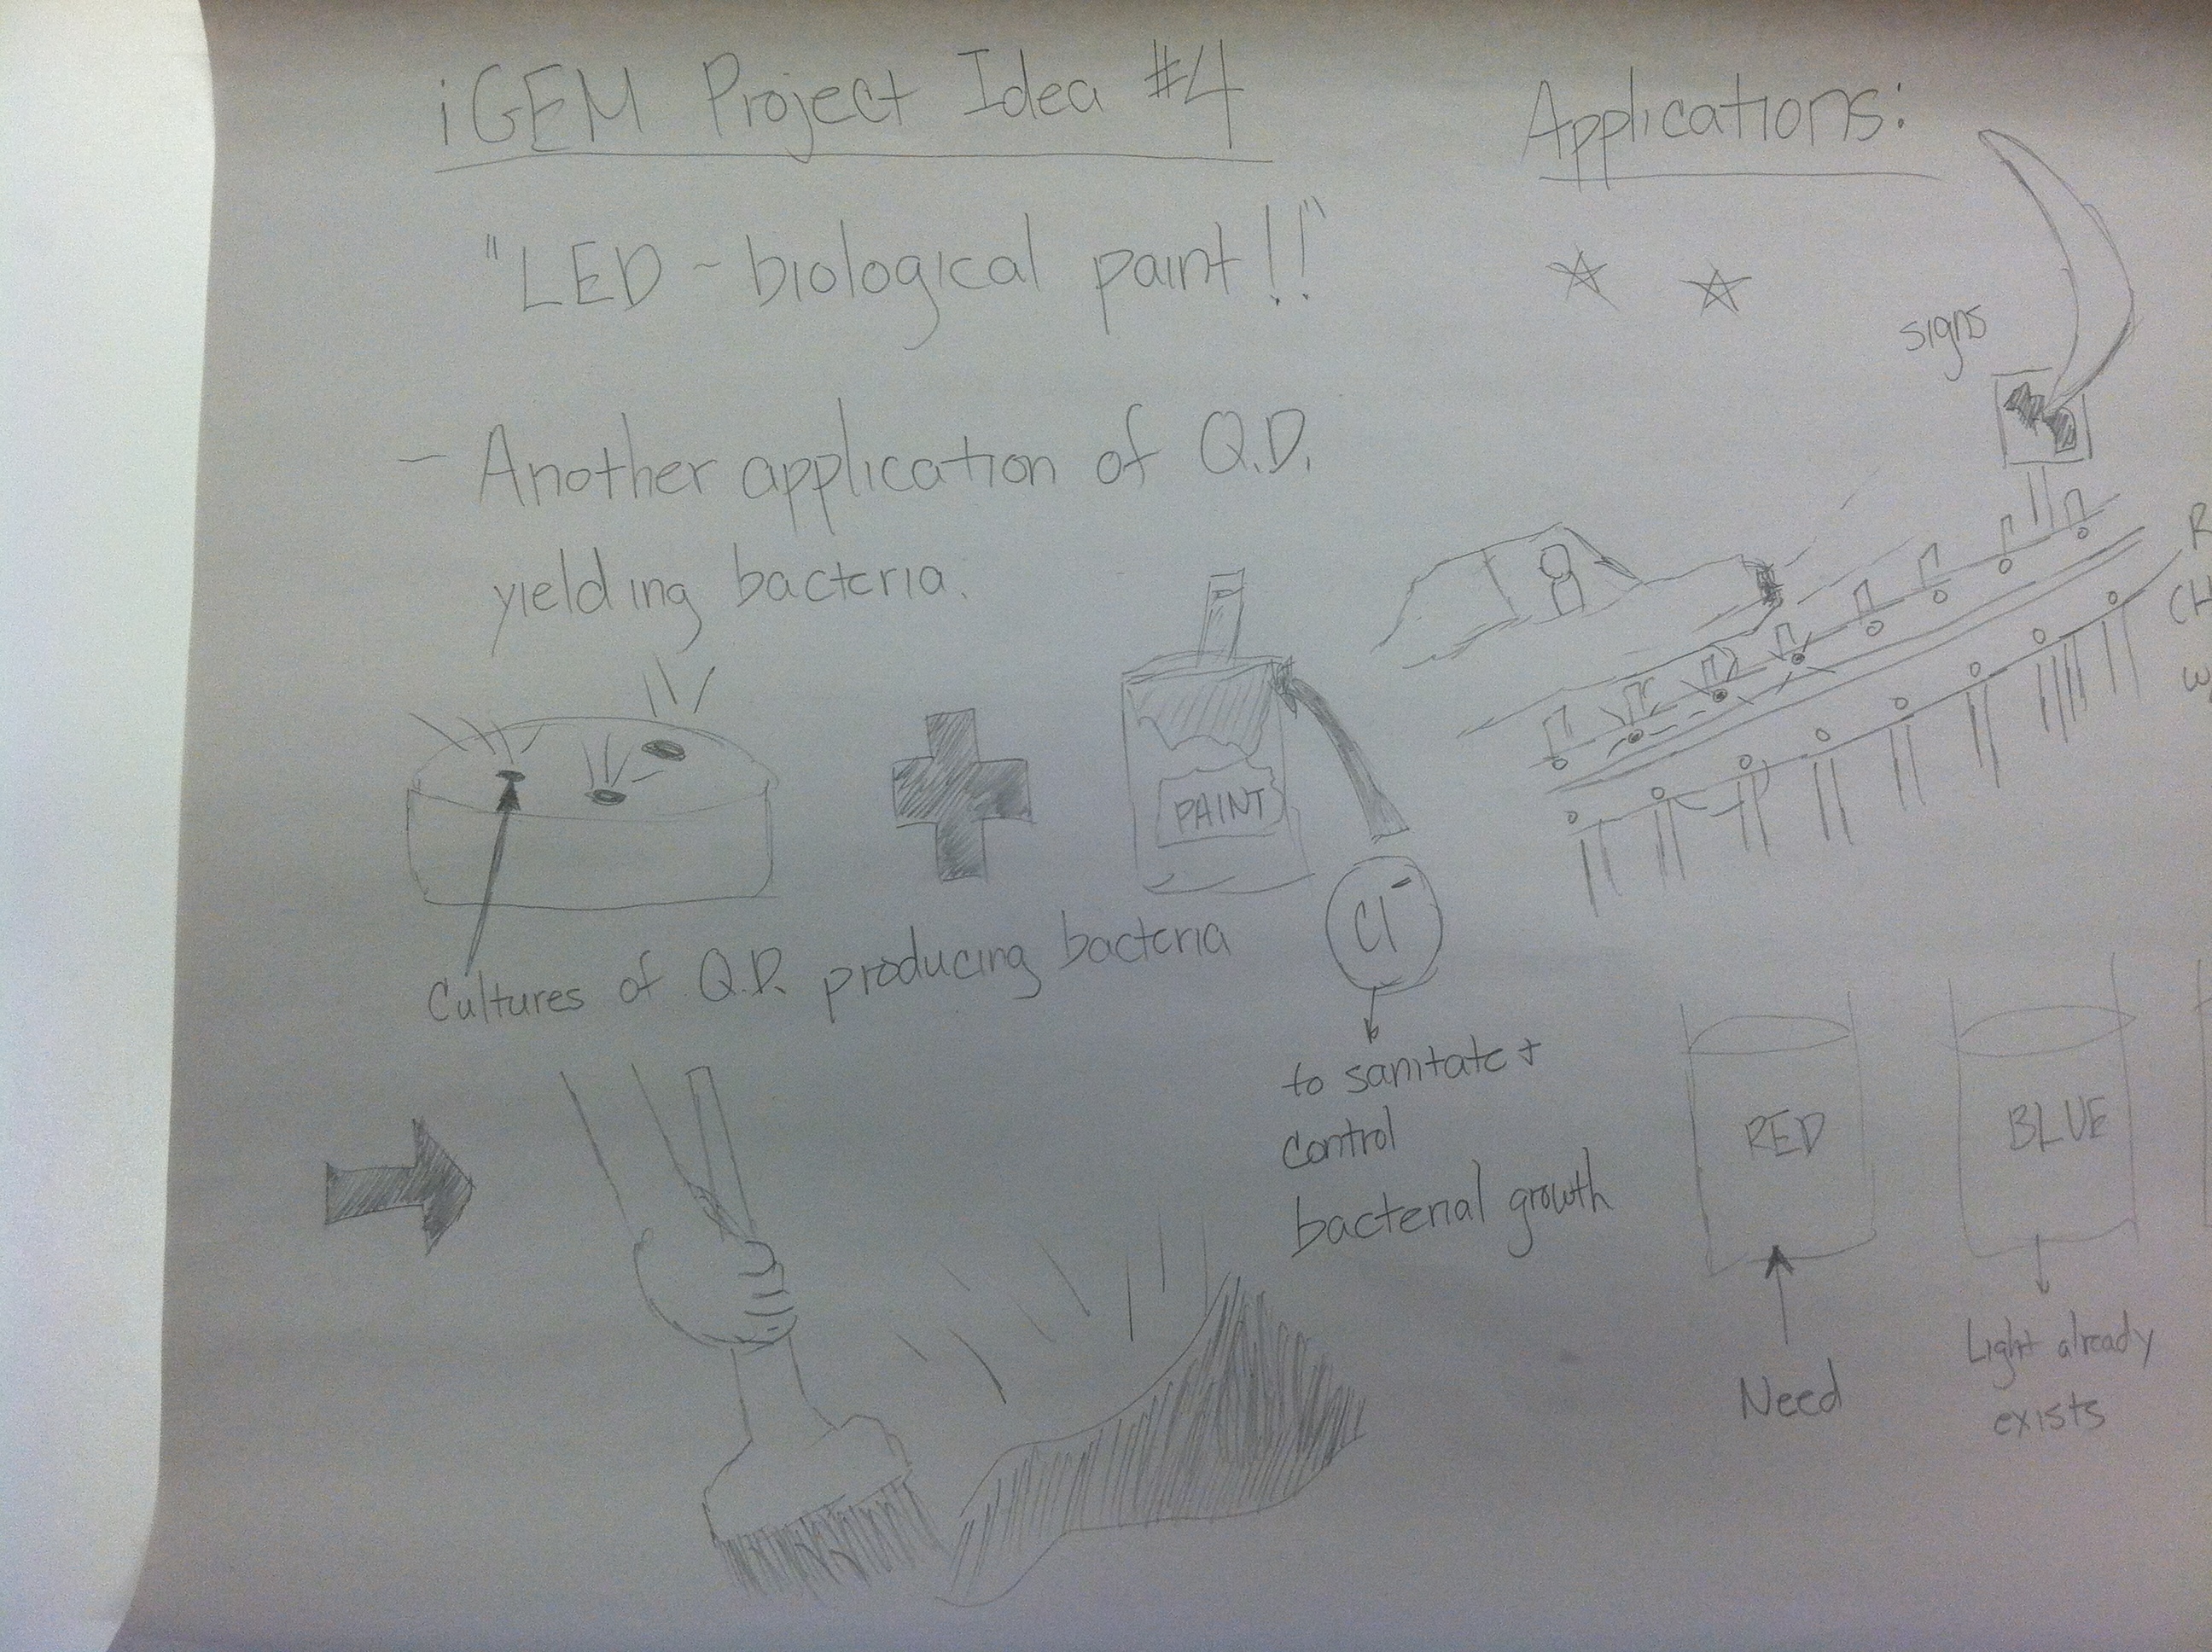 iGEM Project Idea #4
"LED - biological paint!!"
- Another application of Q.D.
yielding bacteria.
PAINT
Cultures of Q.D. producing bacteria
Cl⁻
to sanitate +
control
bacterial growth
Applications:
signs
R
CH
W
RED
BLUE
Need
Light already
exists